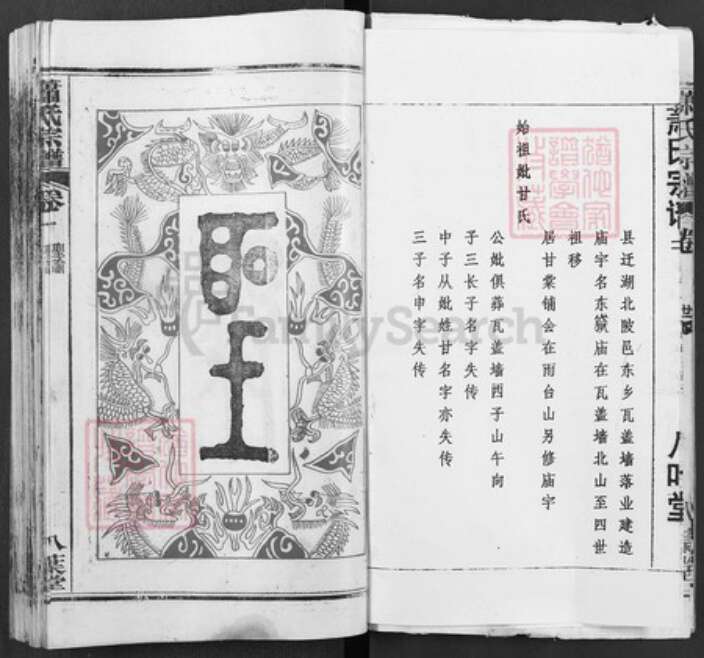 萧氏宗谱 卷一
八叶堂
县迁湖北陂邑东乡瓦盖墙落业建造
庙宇名东嶽庙在瓦盖墙北山至四世
祖移
居甘棠铺会在雨台山另修庙宇
始祖妣甘氏
公妣俱葬瓦盖墙西子山午向
子三长子名字失传
中子从妣姓甘名字亦失传
三子名申字失传
蕭氏宗譜 卷一
八葉堂
FamilySearch